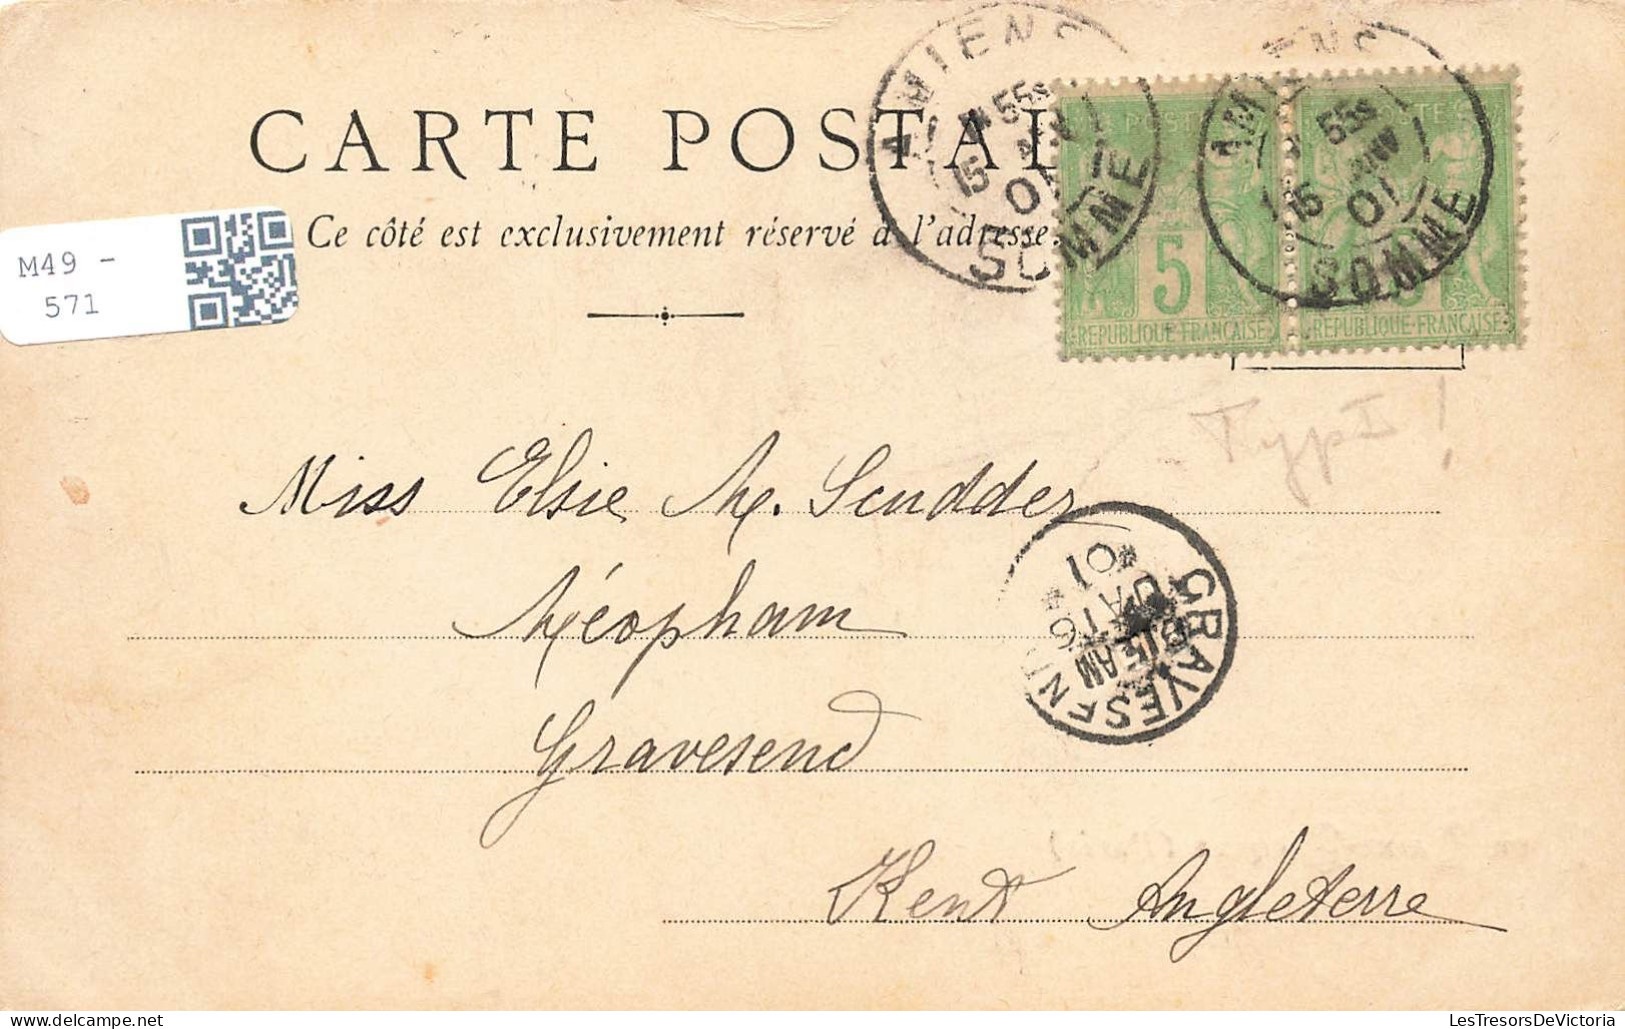 CARTE POSTAL
Ce côté est exclusivement réservé à l'adresse.
M49 -
571
AMIENS
15
01
SOMME
AMIENS
15
01
SOMME
5
REPUBLIQUE FRANÇAISE
REPUBLIQUE FRANÇAISE
Typ I !
Miss Elsie M. Scudder
Méopham
Gravesend
Kent Angleterre
GRAVESEND
AM
01
LesTresorsDeVictoria